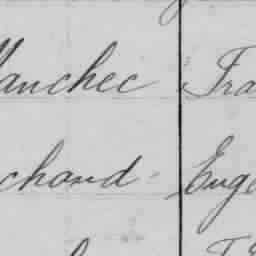 Manchec Fra
chand Euge